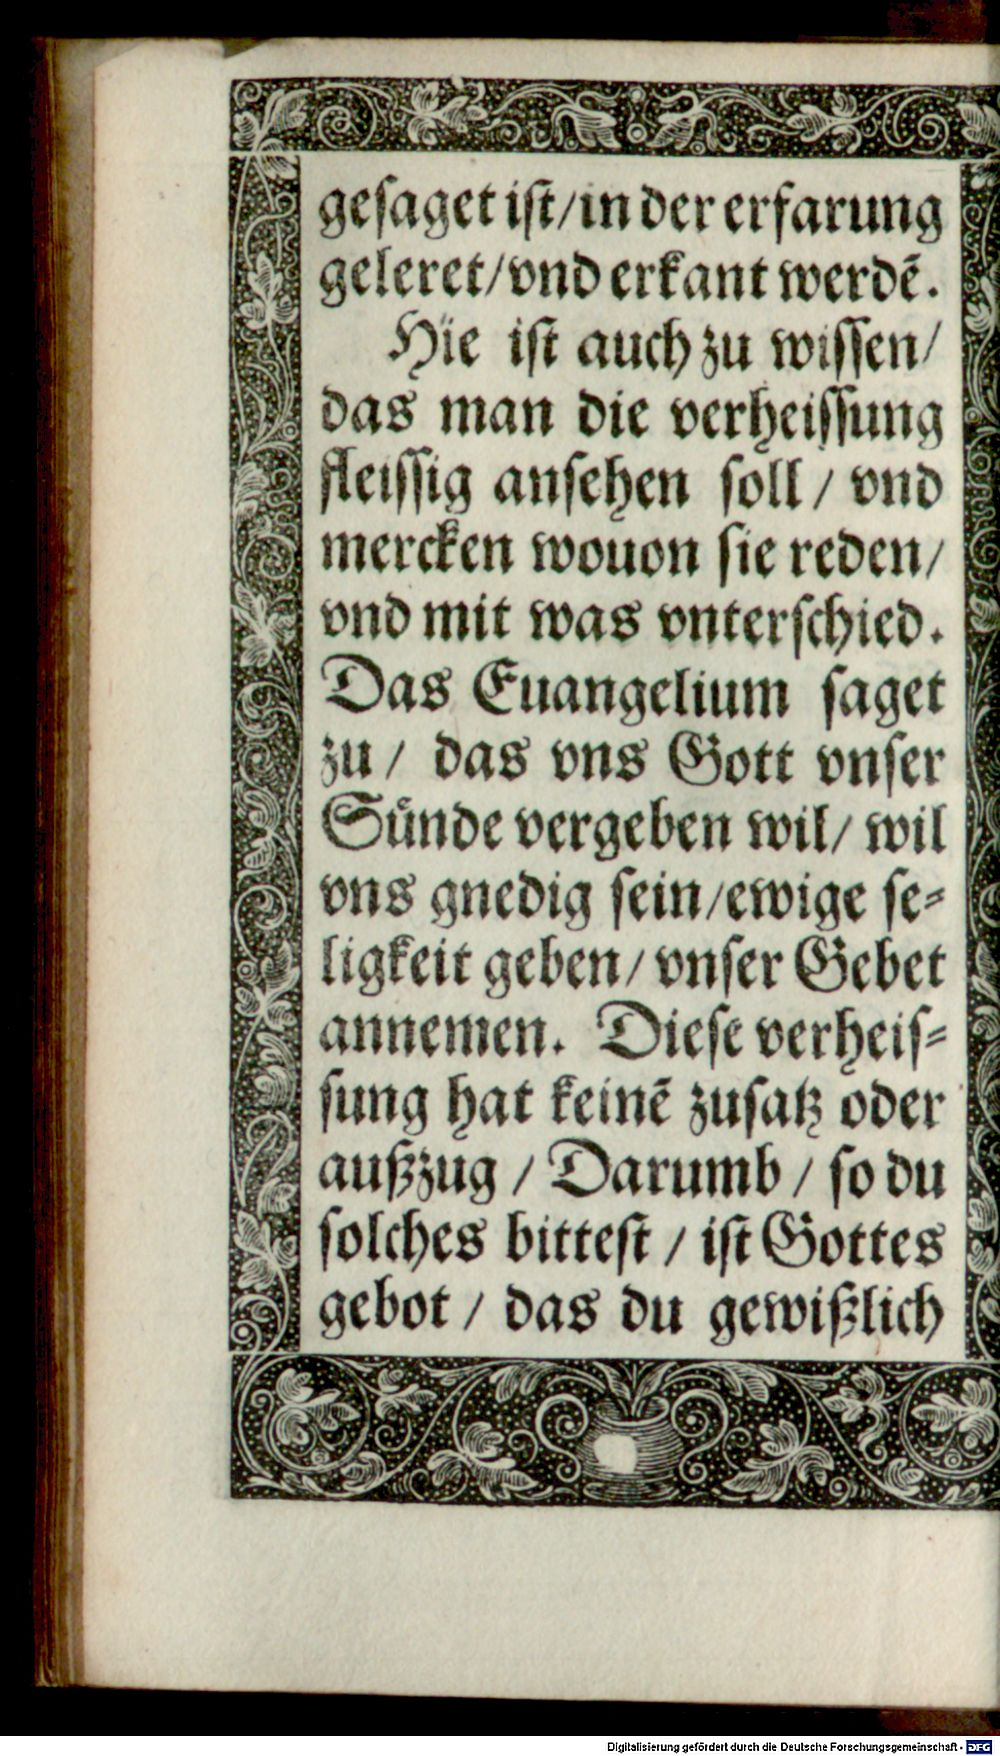 geſaget iſt/in der erfarung
geleret/vnd erkant werdẽ.
Hie iſt auch zu wiſſen/
das man die verheiſſung
fleiſſig anſehen ſoll / vnd
mercken wouon ſie reden/
vnd mit was vnterſchied.
Das Euangelium ſaget
zu / das vns Gott vnſer
Sünde vergeben wil/ wil
vns gnedig ſein/ewige ſe⸗
ligkeit geben/ vnſer Gebet
annemen. Dieſe verheiſ⸗
ſung hat keinẽ zuſatz oder
außzug / Darumb / ſo du
ſolches bitteſt / iſt Gottes
gebot / das du gewißlich
Digitalisierung gefördert durch die Deutsche Forschungsgemeinschaft - DFG